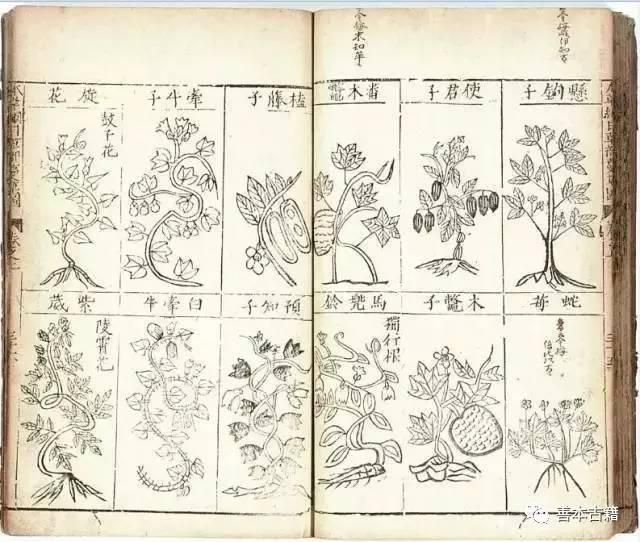 懸鉤子
使君子
番木鼈
蛇苺
木鼈子
馬兜鈴
獨行根
榼藤子
牽牛子
旋花
鼓子花
預知子
白牽牛
紫葳
陵霄花
善本古籍